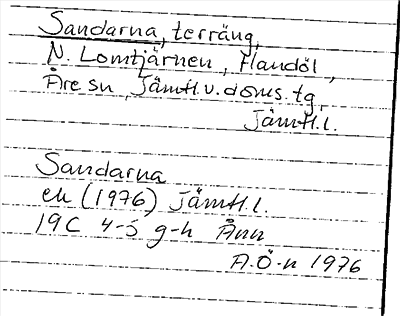 Sandarna, terräng,
N. Lomtjärnen, Handöl,
Åre sn, Jämtl.v.doms.tg,
Jämtl.l.
Sandarna
ek (1976) Jämtl.l.
19C 4-5 g-h Ånn
A.Ö-n 1976